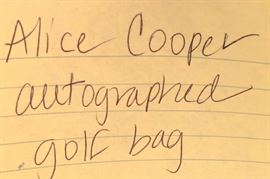 Alice Cooper
autographed
golf bag